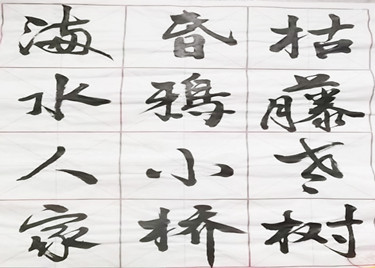 枯藤老树
昏鸦小桥
海水人家